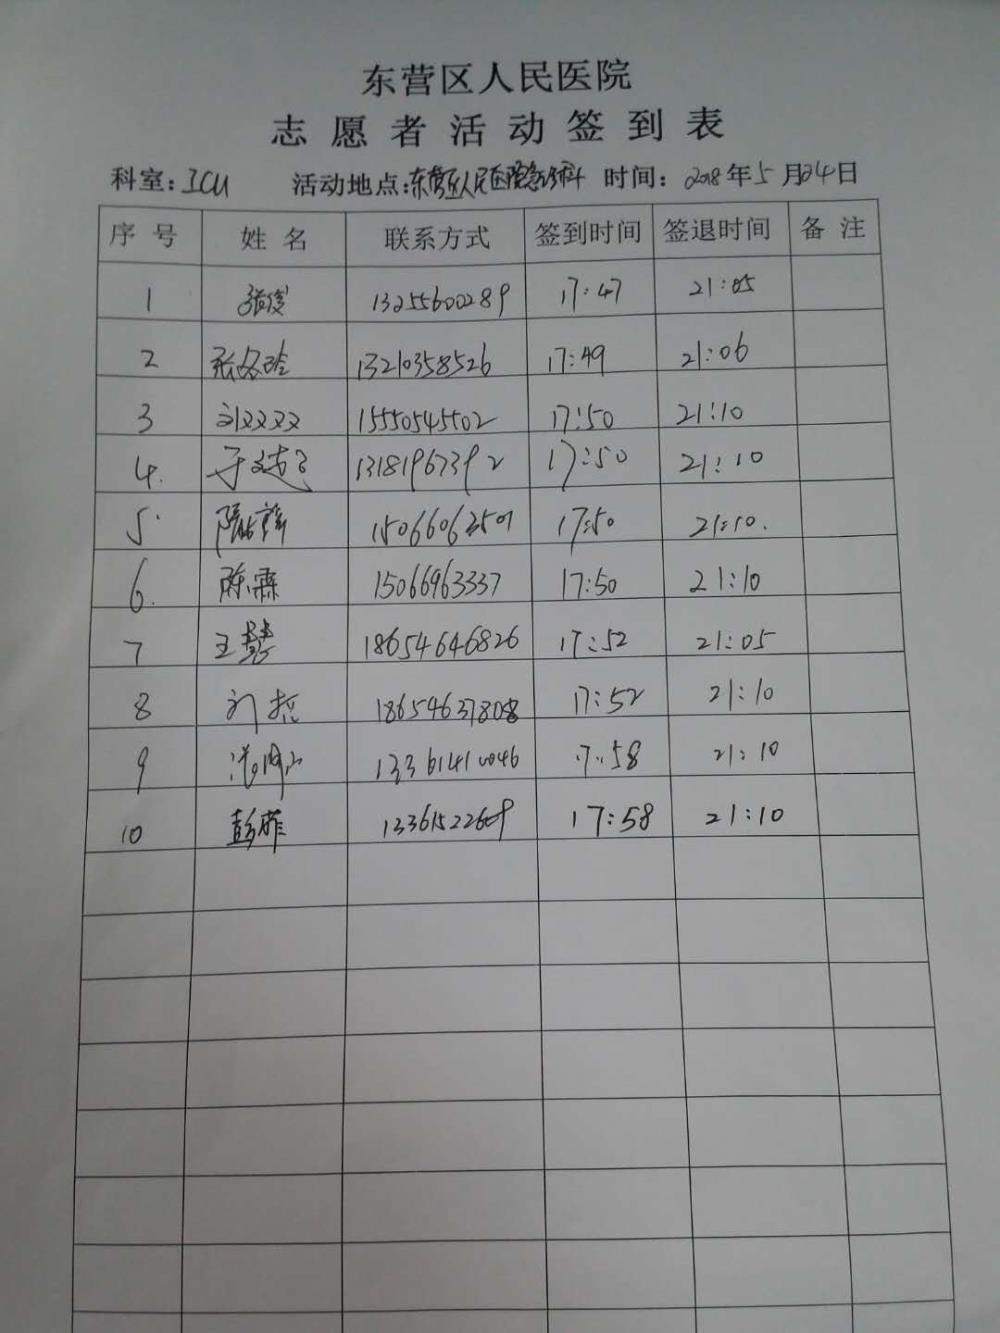 东营区人民医院
志愿者活动签到表
科室：ICU 活动地点：东营区人民医院急诊科 时间：2018年5月24日
序号 姓名 联系方式 签到时间 签退时间 备注
1 张俊 13255600289 17:47 21:05
2 张冬玲 13210358526 17:49 21:06
3 刘双双 15550545502 17:50 21:10
4. 13181967392 17:50 21:10
5. 15066063501 17:50 21:10.
6. 陈霖 15066963337 17:50 21:10
7 王慧 18654646826 17:52 21:05
8 刘哲 18654637808 17:52 21:10
9 13361410046 17:58 21:10
10 彭菲 13361522609 17:58 21:10